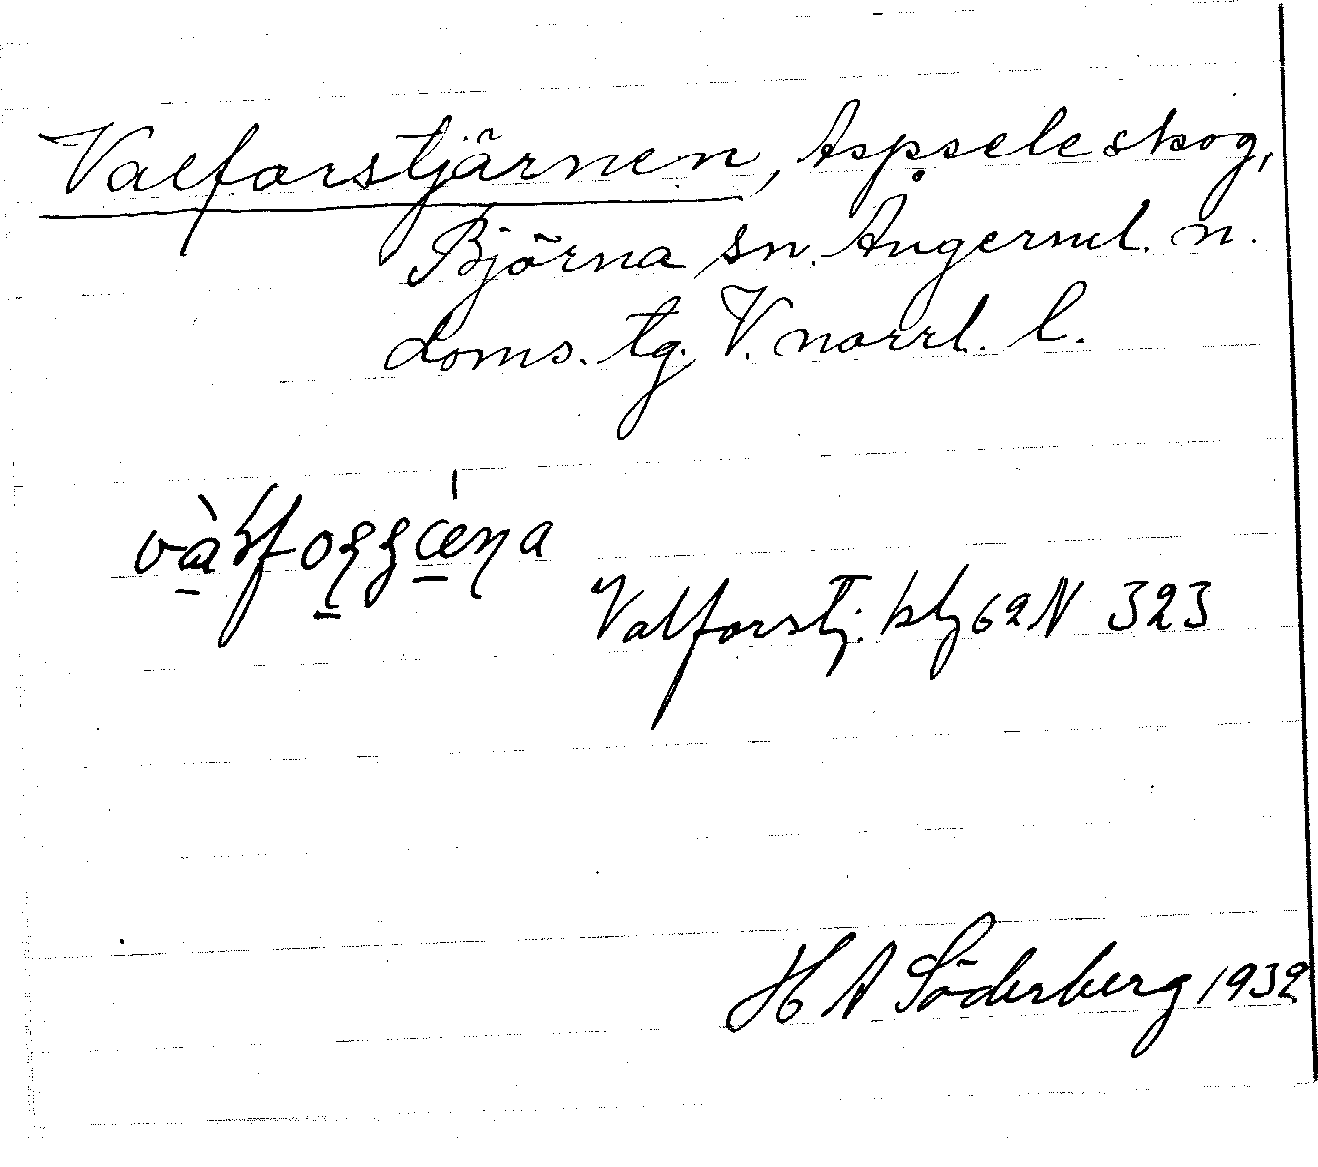 Valforstjärnen, Aspseleskog,
Björna sn. Ångerml. n.
doms. tg. V. norrl. l.
Valforstj. blg 62 N 323
H A Söderberg 1932